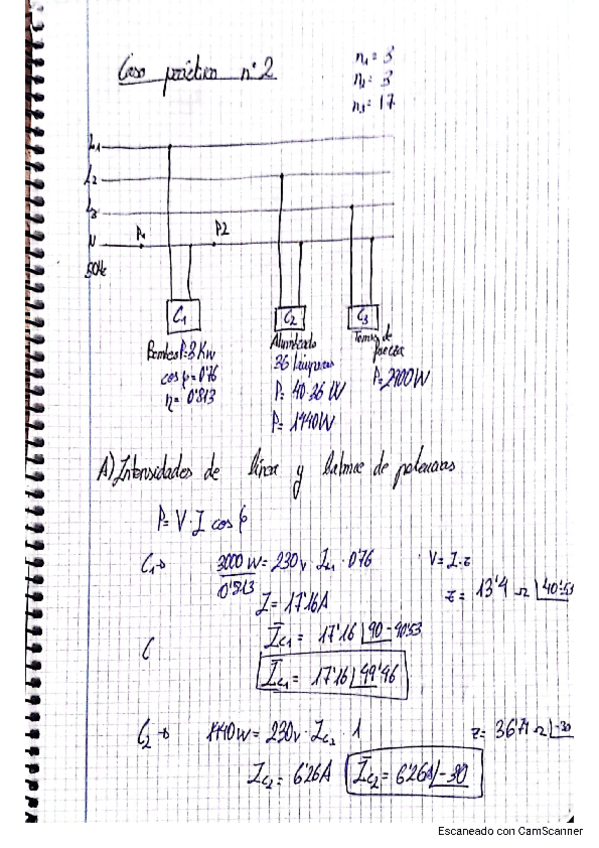 Caso práctico nº 2
n₁ = 3
n₂ = 3
n₃ = 17
L1
L2
L3
N
P1
P2
50Hz
C1
C2
C3
Bombeo P=3 Kw
cos φ = 0'76
η = 0'813
Alumbrado
36 lámparas
P= 40·36 W
P= 1440W
Tomas de
fuerza
P=2700W
A) Intensidades de línea y balance de potencias
P= V·I cos φ
C1→ 3000 W = 230v · I_C1 · 0'76
0'813
V= I·z
I= 17'16A
z= 13'4 Ω |40'53
I_C1 = 17'16 |90-40'53
C
I_C1 = 17'16 |49'46
C2 → 1440w = 230v · I_C2 · 1
z= 36'71 Ω |-30
I_C2 = 6'26A
I_C2 = 6'26A |-30
Escaneado con CamScanner